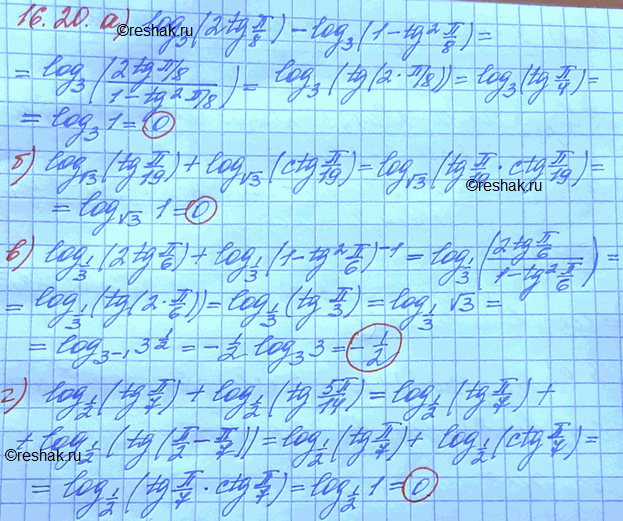 16.20. а) log₃(2tg π/8) − log₃(1 − tg² π/8) =
©reshak.ru
= log₃(2tg π/8 / 1 − tg² π/8) = log₃(tg(2 · π/8)) = log₃(tg π/4) =
= log₃ 1 = 0
б) log_√3(tg π/19) + log_√3(ctg π/19) = log_√3(tg π/19 · ctg π/19) =
©reshak.ru
= log_√3 1 = 0
в) log_1/3(2tg π/6) + log_1/3(1 − tg² π/6)⁻¹ = log_1/3(2tg π/6 / 1 − tg² π/6) =
= log_1/3(tg(2 · π/6)) = log_1/3(tg π/3) = log_1/3 √3 =
= log_3⁻¹ 3^1/2 = −1/2 log₃ 3 = −1/2
г) log_1/2(tg π/7) + log_1/2(tg 5π/14) = log_1/2(tg π/7) +
+ log_1/2(tg(π/2 − π/7)) = log_1/2(tg π/7) + log_1/2(ctg π/7) =
©reshak.ru
= log_1/2(tg π/7 · ctg π/7) = log_1/2 1 = 0